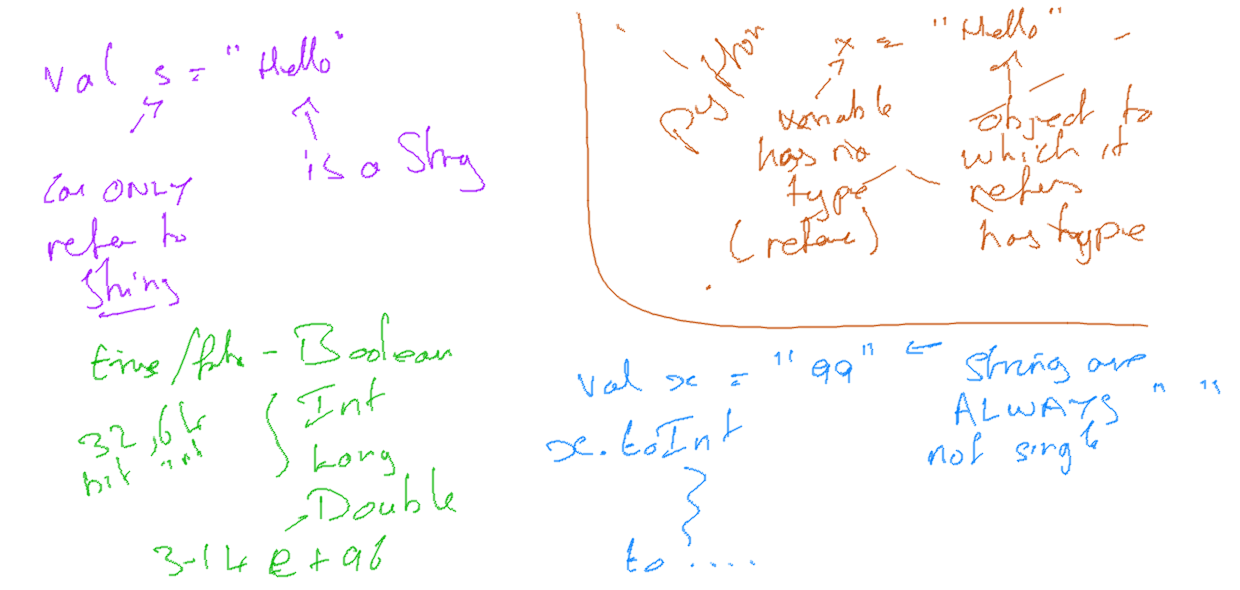 val s = "Hello"
is a Strng
can ONLY
refer to
String
python
x = "Hello"
variable
has no
type
object to
which it
refers
has type
true/false - Boolean
32, 64
bit int
Int
Long
Double
3.14 e + 96
val x = "99" ← String are
ALWAYS " "
not single
x.toInt
to ....